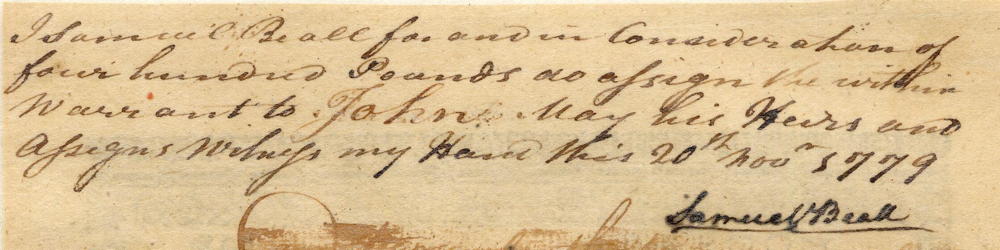 I Samuel Beall for and in Consideration of
four hundred Pounds do assign the within
Warrant to John May his Heirs and
Assigns Witness my Hand this 20th Novr 1779
Samuel Beall